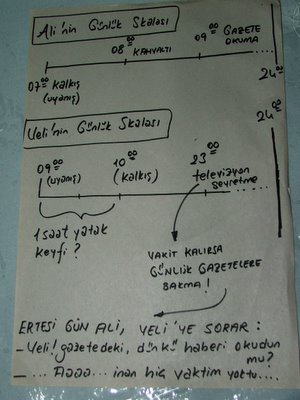 Ali'nin Günlük Skalası
08 00 KAHVALTI
09 00 GAZETE OKUMA
07 00 Kalkış (uyanış)
24 00
Veli'nin Günlük Skalası
24 00
09 00 (uyanış)
10 00 (kalkış)
23 00 televizyon seyretme
1 saat yatak keyfi?
VAKİT KALIRSA
GÜNLÜK GAZETELERE
BAKMA!
ERTESİ GÜN ALİ, VELİ'YE SORAR:
- Veli! gazetedeki, dünkü haberi okudun mu?
- ... Aaaa... inan hiç vaktim yoktu....